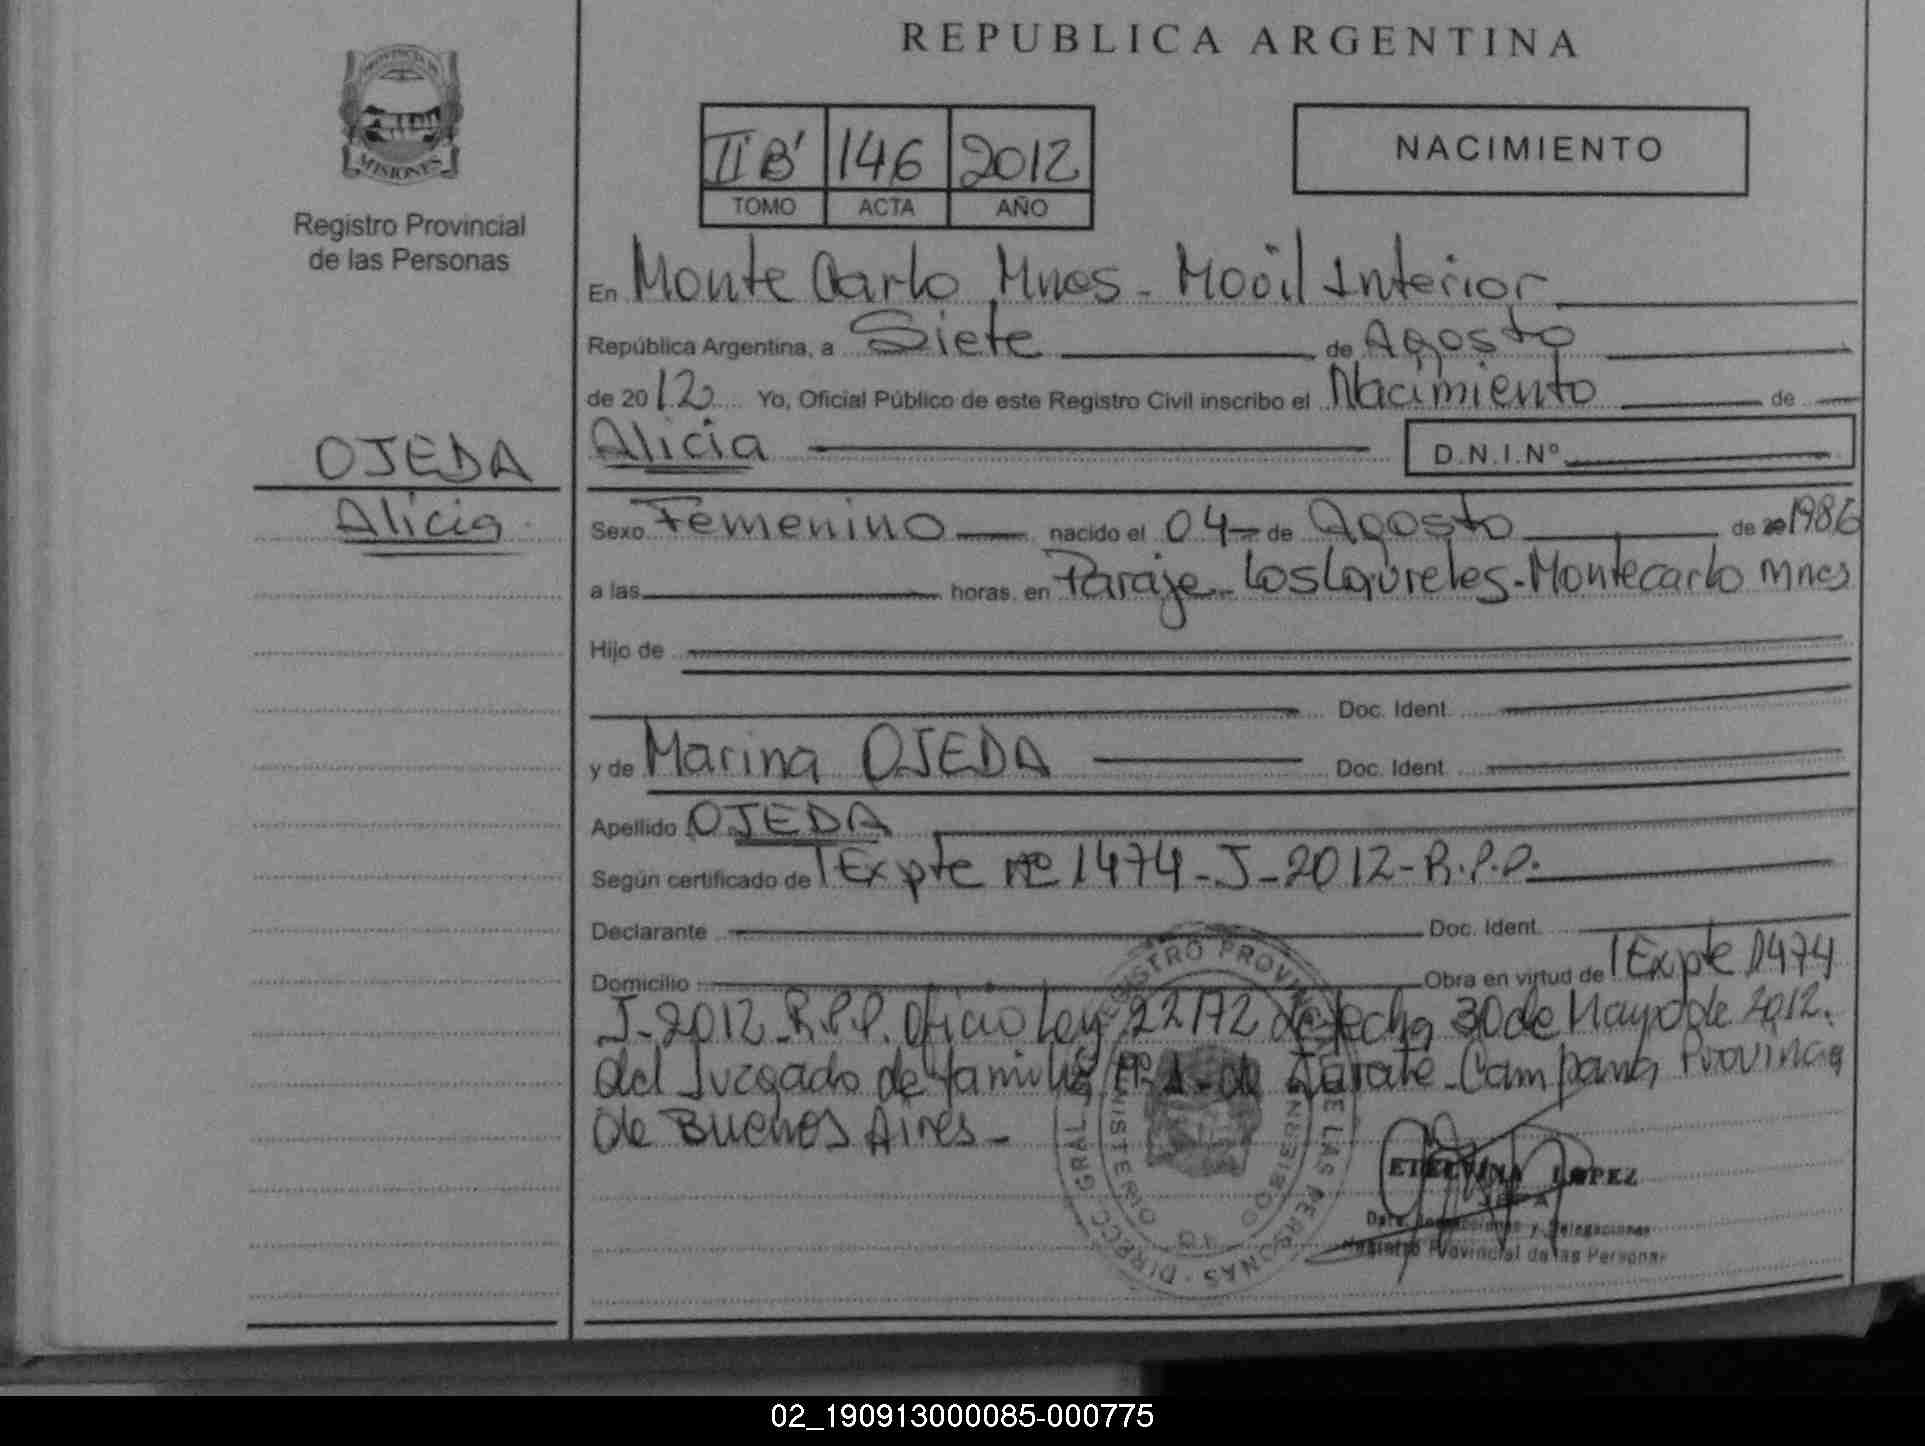 REPUBLICA ARGENTINA
PROVINCIA DE
MISIONES
Registro Provincial
de las Personas
II 'B' 146 2012
TOMO ACTA AÑO
NACIMIENTO
En Monte Carlo Mnes - Movil Interior
República Argentina, a Siete de Agosto
de 2012 Yo, Oficial Público de este Registro Civil inscribo el Nacimiento de
OJEDA
Alicia
Alicia D.N.I.Nº
Sexo Femenino nacido el 04 de Agosto de 20 1986
a las horas, en Paraje Los Laureles - Montecarlo Mnes
Hijo de
Doc. Ident.
y de Marina OJEDA Doc. Ident.
Apellido OJEDA
Según certificado de Expte nº 1474-J-2012-R.P.P.
Declarante Doc. Ident.
Domicilio Obra en virtud de Expte 1474
J-2012-R.P.P. Oficio Ley 22172 de fecha 30 de Mayo de 2012.
del Juzgado de familia Nº 1 de Zarate-Campana Provincia
de Buenos Aires -
REGISTRO PROVINCIAL DE LAS PERSONAS · DIRECC. GRAL.
MINISTERIO DE GOBIERNO
ETELVINA LOPEZ
JEFA
Dpto. Inspecciones y Delegaciones
Registro Provincial de las Personas
02_190913000085-000775